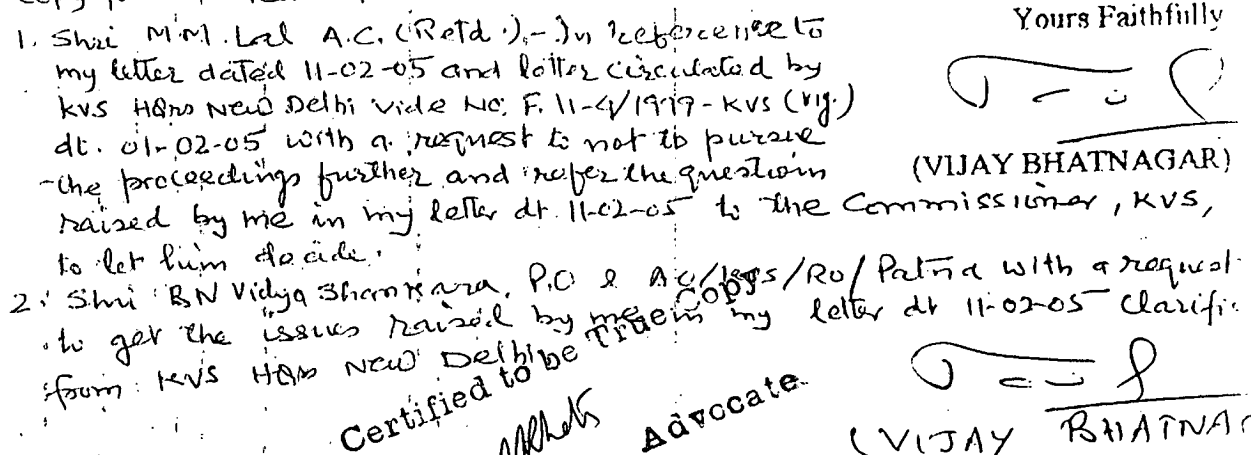 1. Shri M.M. Lal A.C. (Retd.),- In reference to
my letter dated 11-02-05 and letter circulated by
KVS HQrs New Delhi vide No. F. 11-4/1999-KVS (Vig.)
dt. 01-02-05 with a request to not to pursue
the proceedings further and refer the question
raised by me in my letter dt. 11-02-05 to the Commissioner, KVS,
to let him decide.
Yours Faithfully
(VIJAY BHATNAGAR)
2. Shri BN Vidya Shankara, P.O & AC/KVS/RO/Patna with a request
to get the issues raised by me in my letter dt 11-02-05 Clarifi
from KVS HQrs New Delhi
Certified to be True Copy
Advocate
(VIJAY BHATNA